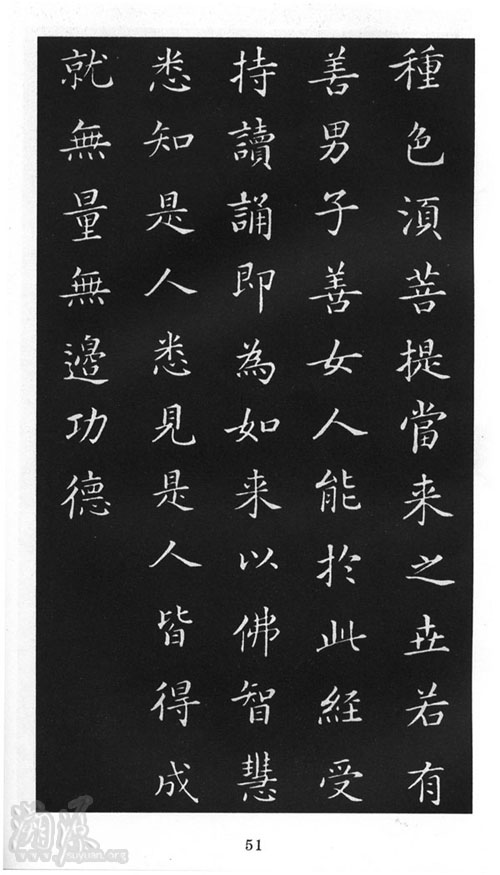 種色須菩提當来之世若有
善男子善女人能於此經受
持讀誦即為如来以佛智慧
悉知是人悉見是人皆得成
就無量無邊功德
51
www.suyuan.org